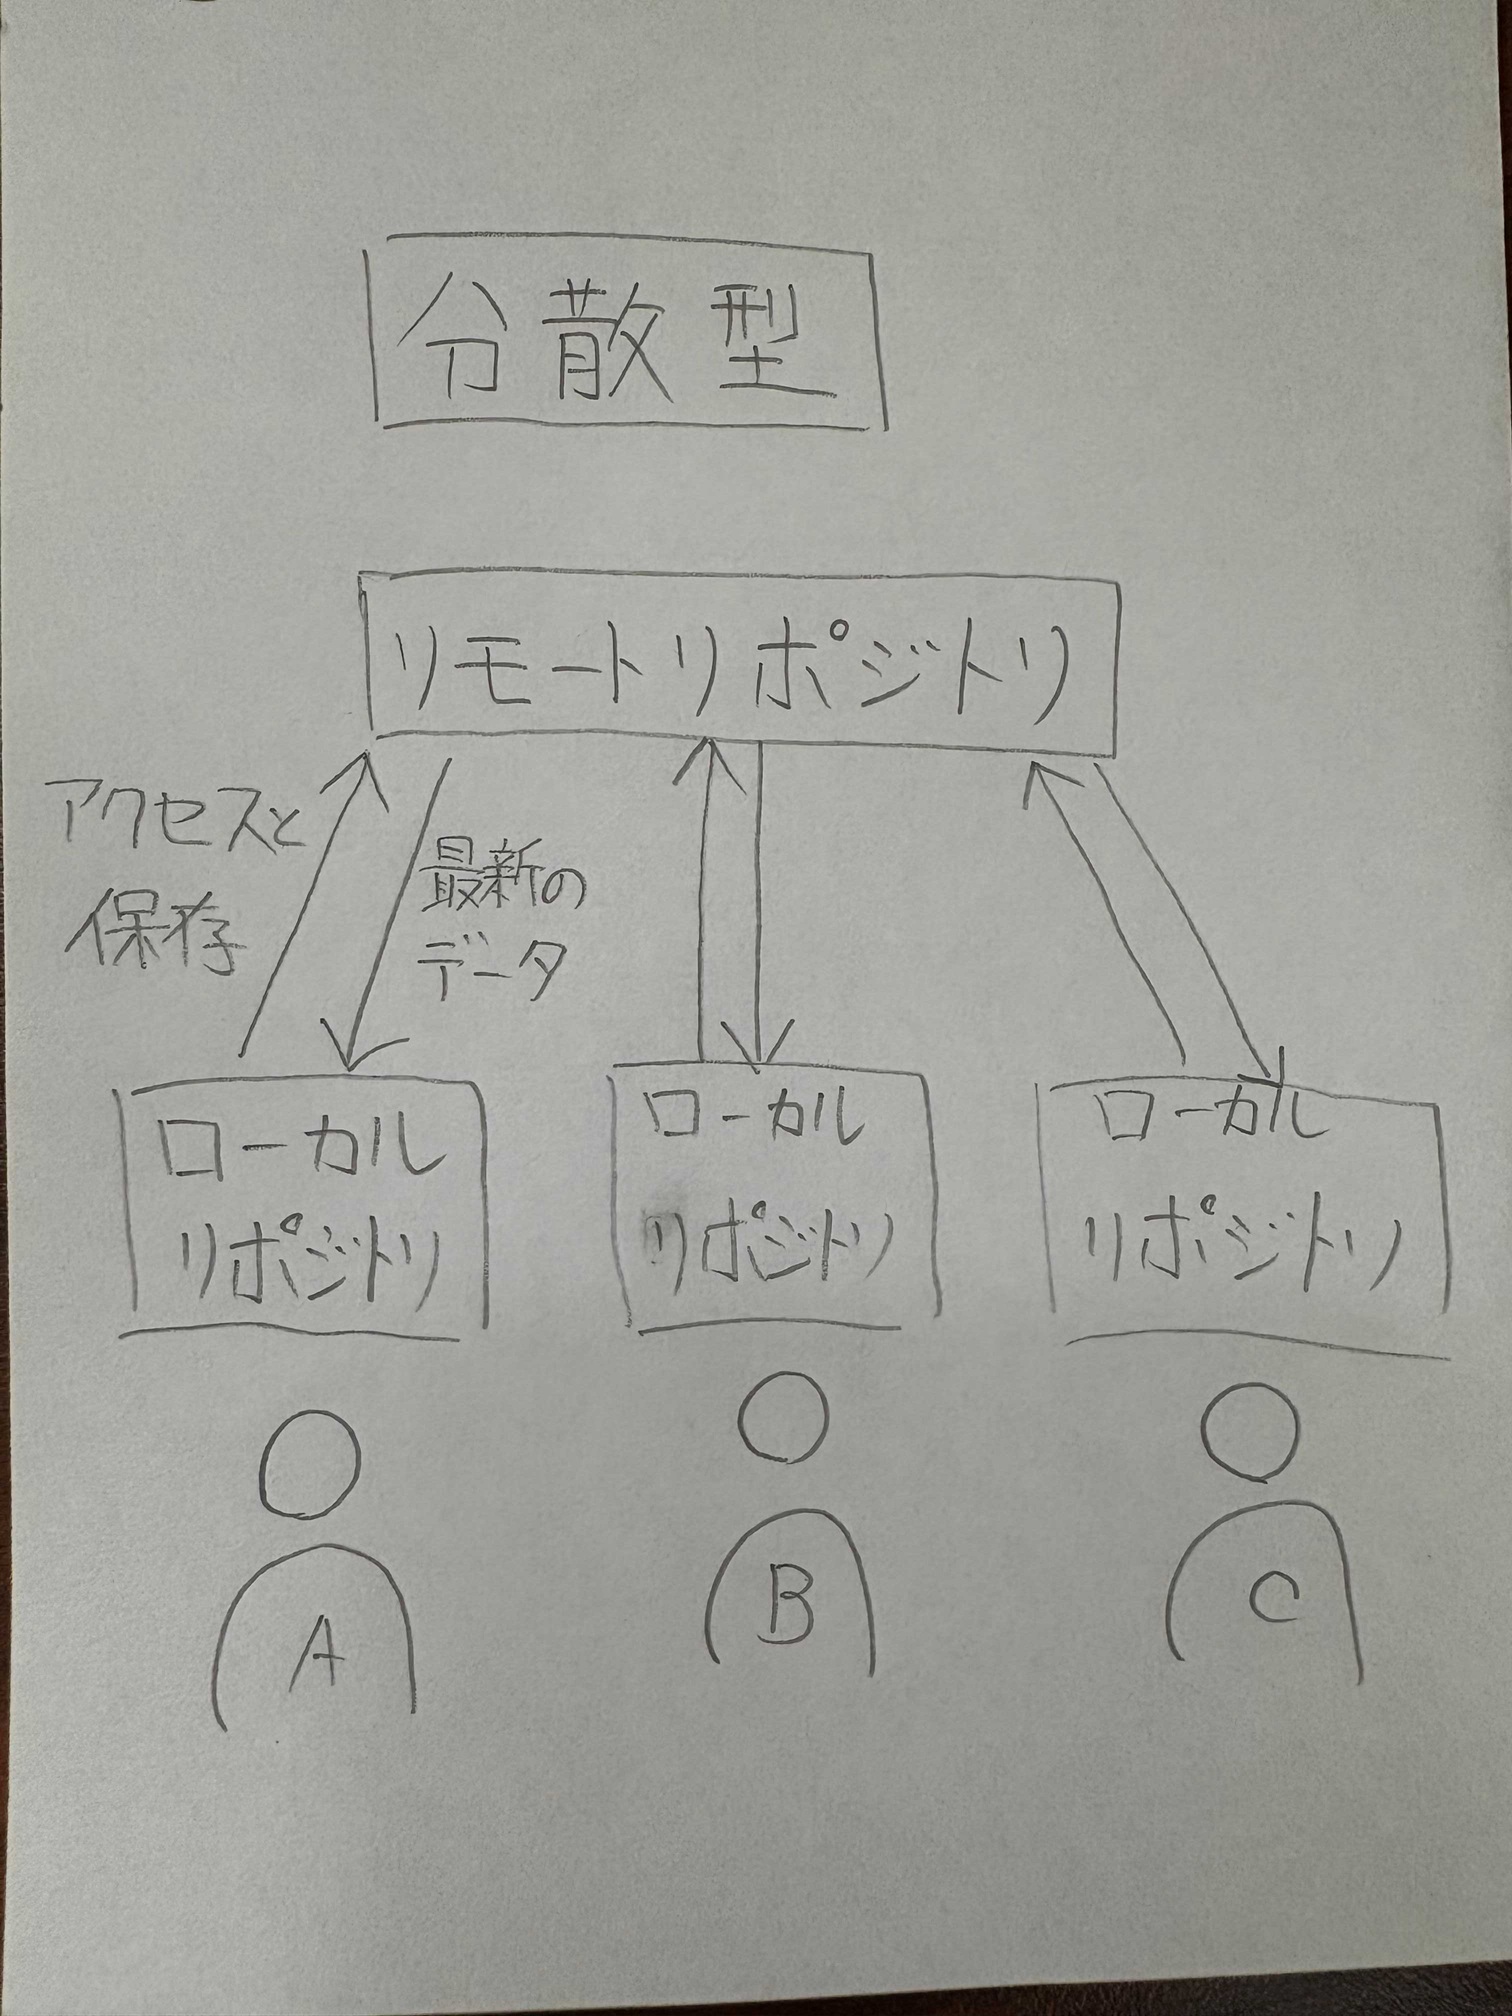 分散型
リモートリポジトリ
アクセスと
保存
最新の
データ
ローカル
リポジトリ
ローカル
リポジトリ
ローカル
リポジトリ
A
B
C